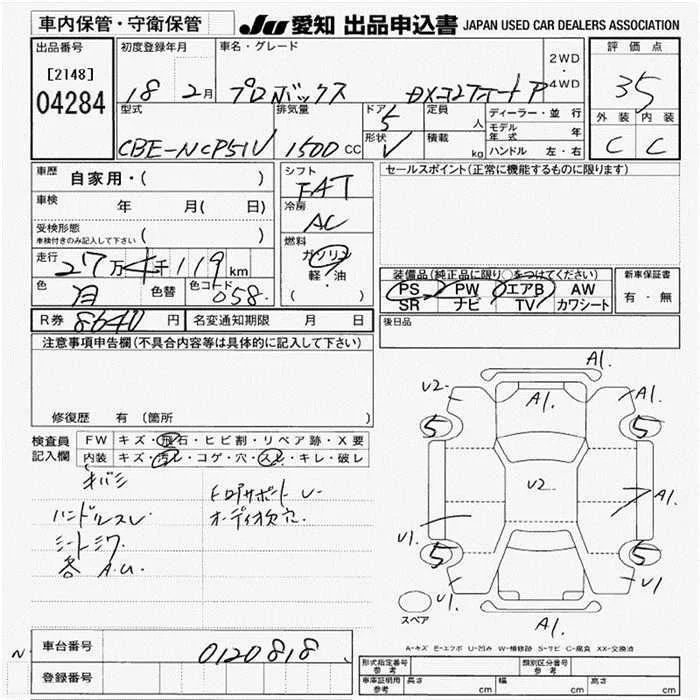 車内保管・守衛保管
JU 愛知 出品申込書 JAPAN USED CAR DEALERS ASSOCIATION
出品番号 初度登録年月 車名・グレード 2WD・4WD 評価点
[2148]
04284 18 2月 プロボックス DXコンフォートP 35
型式 排気量 ドア 5 定員 人 ディーラー・並行 外装 内装
CBE-NCP51V 1500 CC 形状 V 積載 kg モデル年式 年 C C
ハンドル 左・右
車歴 自家用・( ) シフト FAT セールスポイント(正常に機能するものに限ります)
車検 年 月( 日) 冷房 AC
受検形態 ( )
車検付きのみ記入して下さい
燃料 ガソリン
走行 27万4千119km 軽・油
( )
装備品(純正品に限り○をつけてください) 新車保証書
色 色替 色コード 058
PS PW エアB AW 有・無
SR ナビ TV カワシート
R券 8640 円 名変通知期限 月 日 後日品
注意事項申告欄(不具合内容等は具体的に記入して下さい)
修復歴 有 (箇所 )
検査員 FW キズ・飛石・ヒビ割・リペア跡・X要
記入欄 内装 キズ・汚レ・コゲ・穴・スレ・キレ・破レ
ハンドルスレ
オーディオ欠穴
シートシワ
各 A.U.
A1.
U2. A1. A1.
5 5
U2. A1.
U1.
5 5
U1. U1.
A1.
スペア
A-キズ E-エクボ U-凹み W-補修跡 S-サビ C-腐食 XX-交換済
車台番号 0120818
登録番号
形式指定番号 参考 類別区分番号 参考
車庫証明用 参考 長さ cm 幅 cm 高さ cm
N